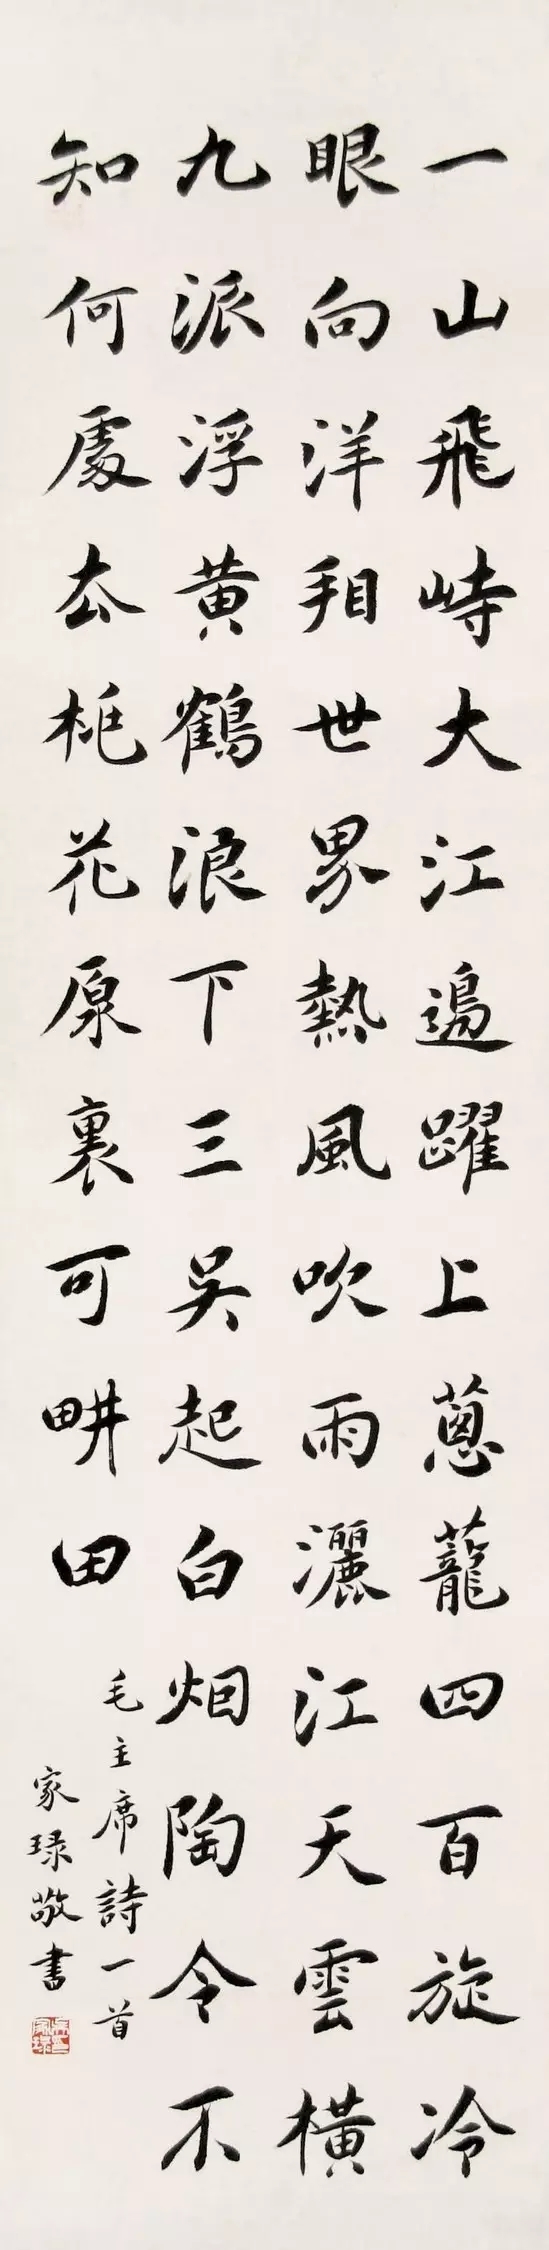 一山飛峙大江邊躍上蔥蘢四百旋冷
眼向洋看世界熱風吹雨灑江天雲橫
九派浮黃鶴浪下三吳起白烟陶令不
知何處去桃花原裏可畊田
毛主席詩一首
家琭敬書